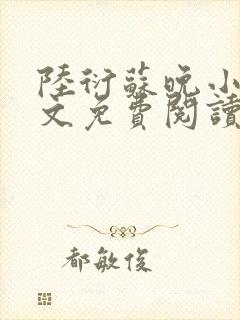 陸衍蘇晚小
文免費閱讀
都敏俊